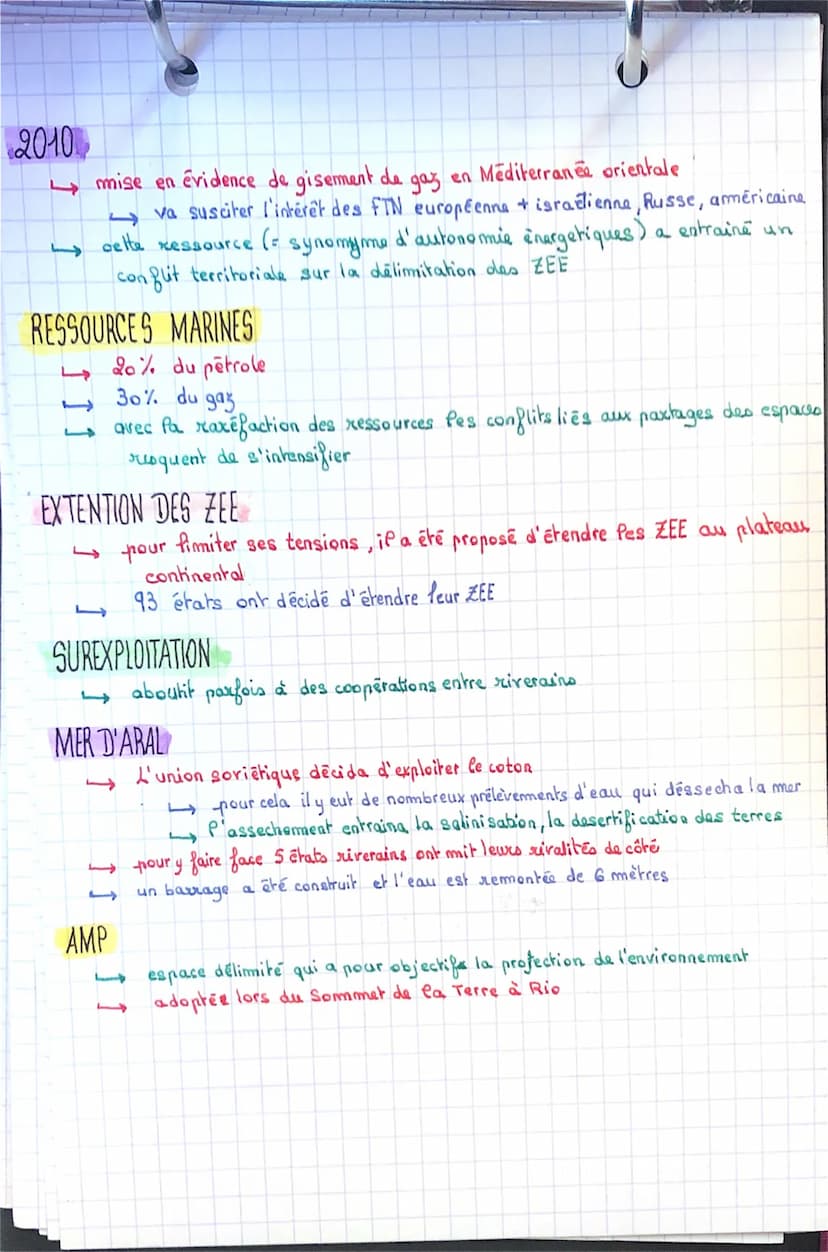 2010
↳ mise en évidence de gisement de gaz en Méditerranée orientale
↳ va susciter l'intérêt des FTN européenne + israélienne, Russe, américaine
↳ cette ressource (= synonyme d'autonomie énergetiques) a entrainé un
conflit territoriale sur la délimitation des ZEE
RESSOURCES MARINES
↳ 20% du pétrole
↳ 30% du gaz
↳ avec la raréfaction des ressources les conflits liés aux partages des espaces
risquent de s'intensifier
EXTENTION DES ZEE
↳ pour limiter ses tensions, il a été proposé d'étendre les ZEE au plateau
continental
↳ 93 états ont décidé d'étendre leur ZEE
SUREXPLOITATION
↳ aboutit parfois à des coopérations entre riverains
MER D'ARAL
↳ L'union soviétique décida d'exploiter le coton
↳ pour cela il y eut de nombreux prélèvements d'eau qui déssecha la mer
↳ l'assechement entraina la salinisation, la desertification des terres
↳ pour y faire face 5 états riverains ont mit leurs rivalités de côté
↳ un barrage a été construit et l'eau est remontée de 6 mètres
AMP
↳ espace délimité qui a pour objectifs la protection de l'environnement
↳ adoptée lors du Sommet de la Terre à Rio